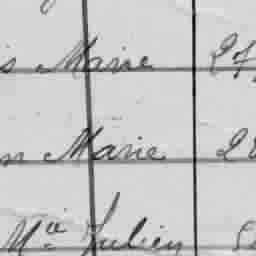 s Marie 27
n Marie 28
Mie Julien